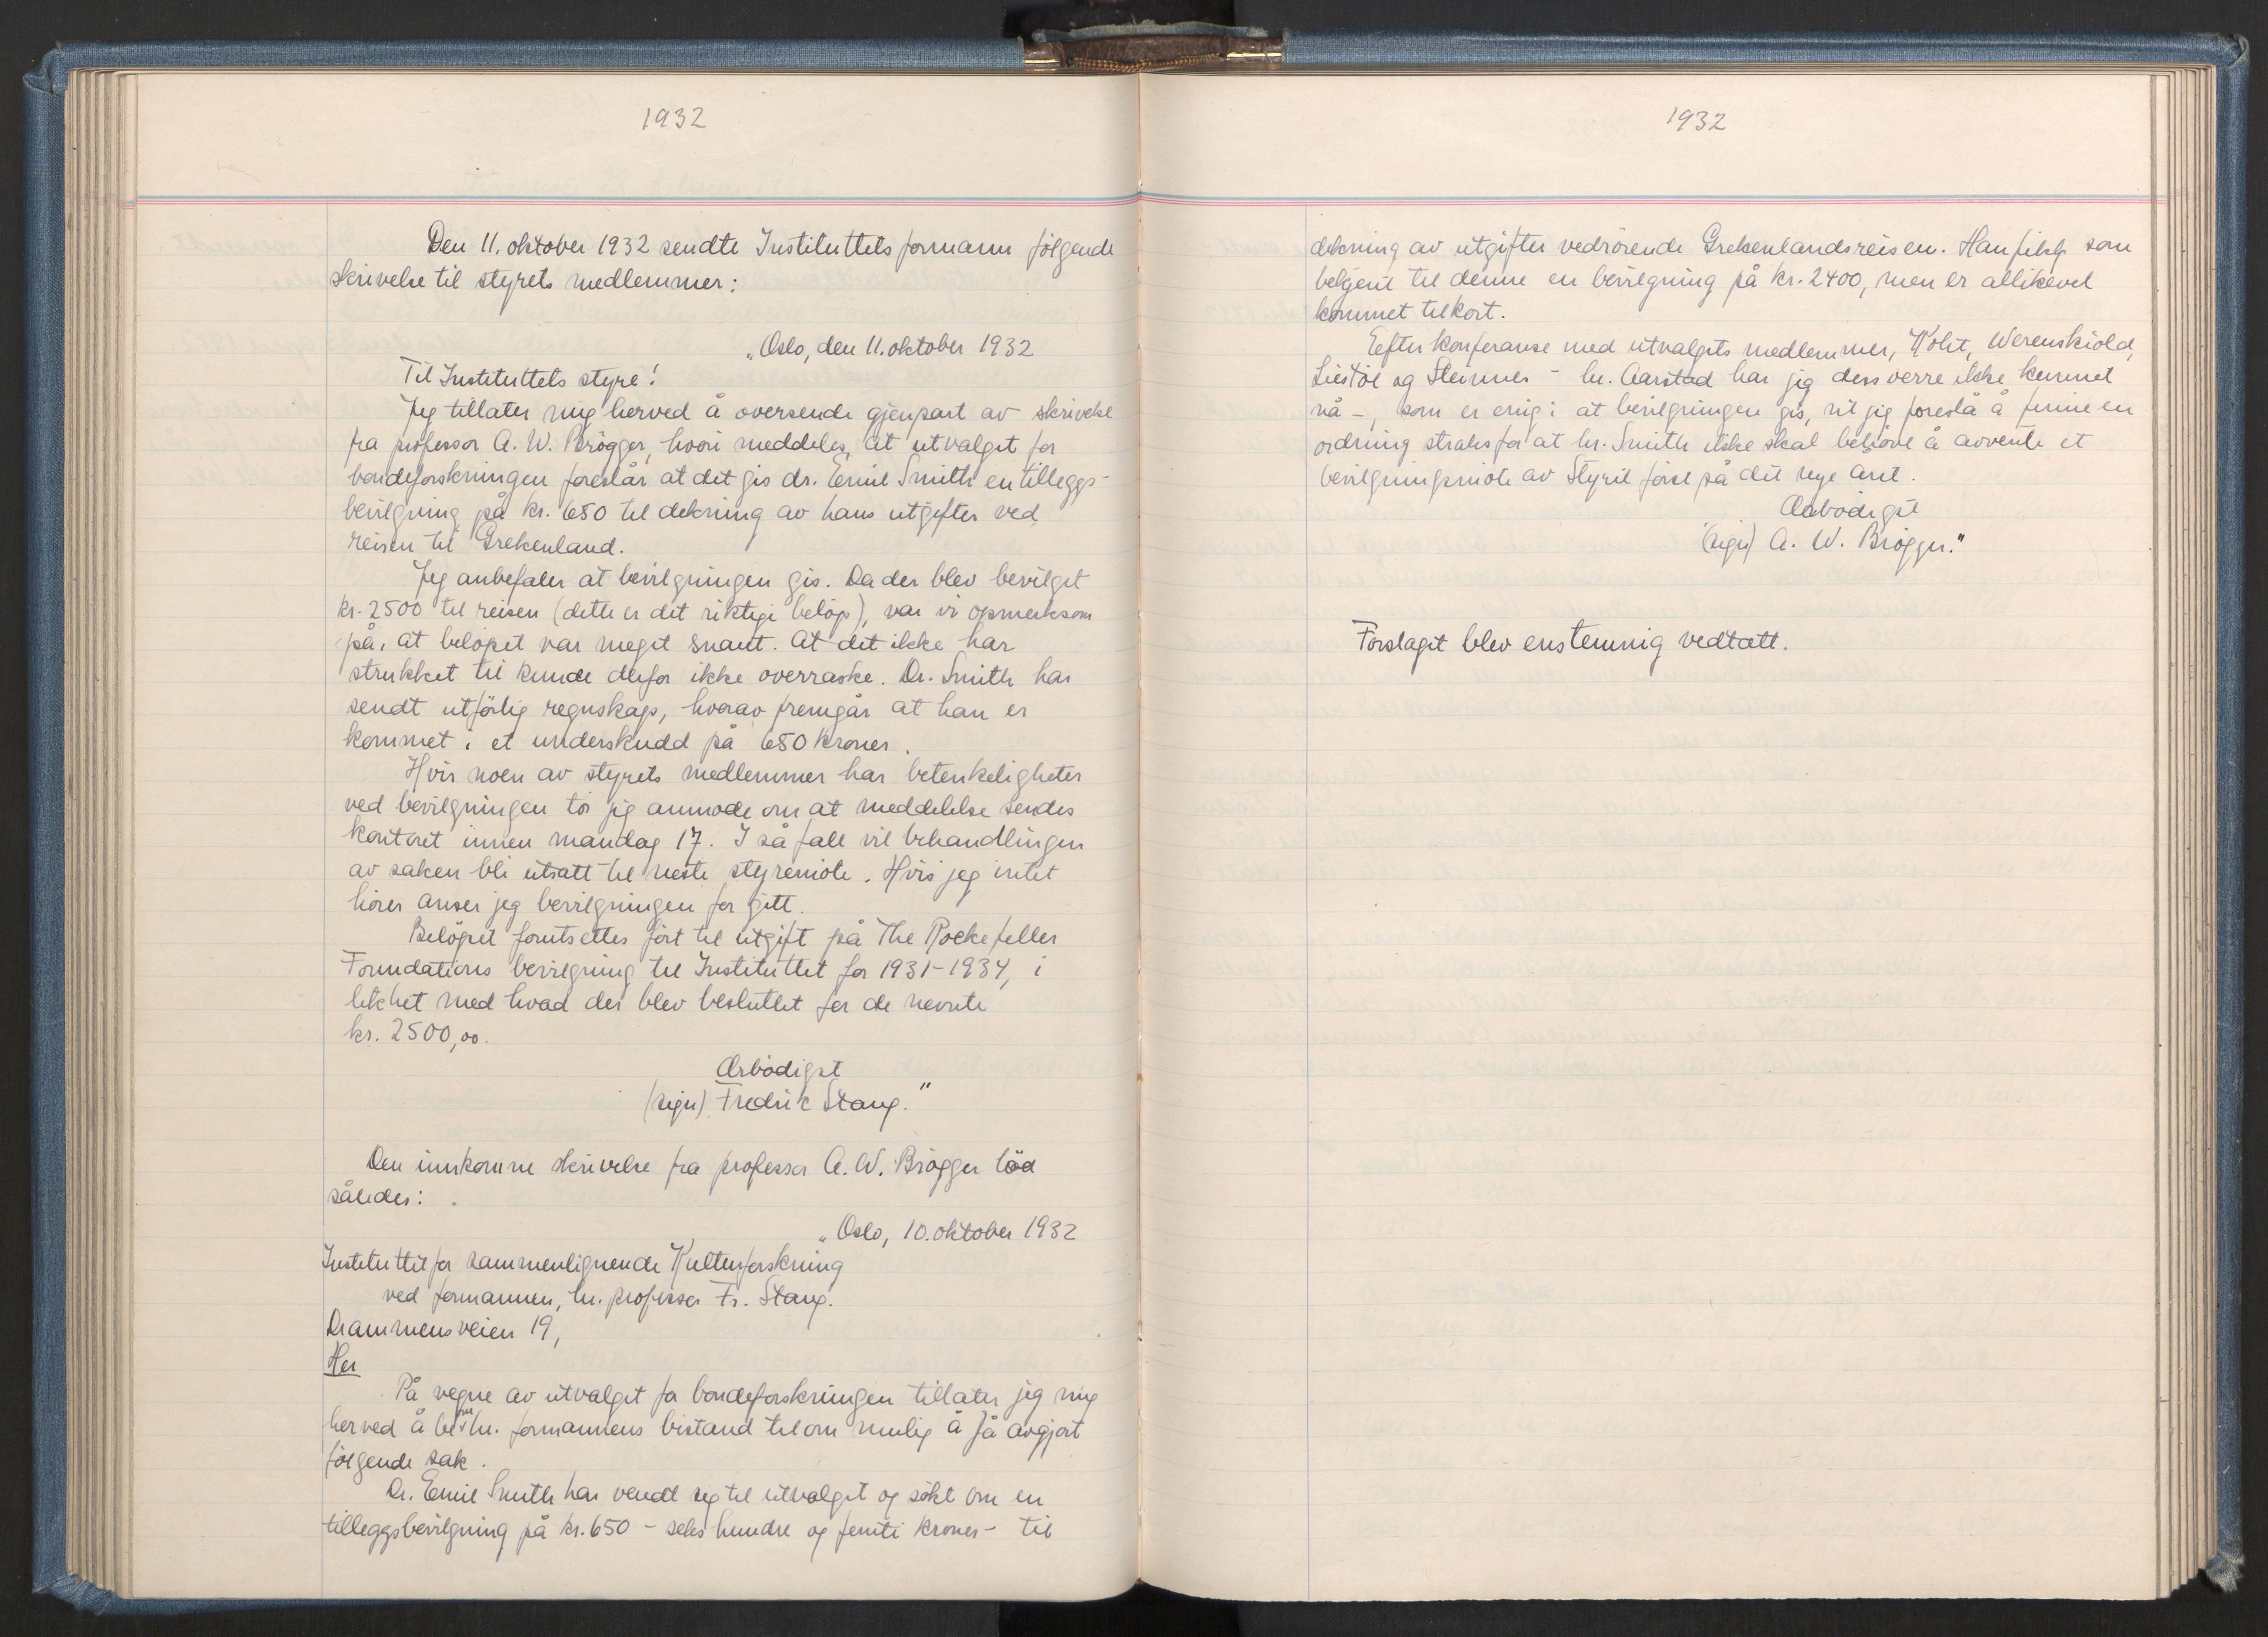 1932
Den 11. oktober 1932 sendte Instituttets formann følgende
skrivelse til styrets medlemmer:
„Oslo, den 11. oktober 1932
Til Instituttets styre!
Jeg tillater mig herved å oversende gjenpart av skrivelse
fra professor A. W. Brøgger, hvori meddeles, at utvalget for
bondeforskningen foreslår at det gis dr. Emil Smith en tilleggs-
bevilgning på kr. 650 til dekning av hans utgifter ved
reisen til Grekenland.
Jeg anbefaler at bevilgningen gis. Da der blev bevilget
kr. 2500 til reisen (dette er det riktige beløp), var vi opmerksom
på, at beløpet var meget snaut. At det ikke har
strukket til kunde derfor ikke overraske. Dr. Smith har
sendt utførlig regnskap, hvorav fremgår at han er
kommet i et underskudd på 650 kroner.
Hvis noen av styrets medlemmer har betenkeligheter
ved bevilgningen tør jeg anmode om at meddelelse sendes
kontoret innen mandag 17. I så fall vil behandlingen
av saken bli utsatt til neste styremøte. Hvis jeg intet
hører anser jeg bevilgningen for gitt.
Beløpet forutsettes ført til utgift på The Rockefeller
Foundations bevilgning til Instituttet for 1931-1934, i
likhet med hvad der blev besluttet for de nevnte
kr. 2500,00.
Ærbødigst
(sign) Fredrik Stang."
Den innkomne skrivelse fra professor A. W. Brøgger lød
således:
„Oslo, 10. oktober 1932
Instituttet for sammenlignende Kulturforskning
ved formannen, hr. professor Fr. Stang.
Drammensveien 19,
Her
På vegne av utvalget for bondeforskningen tillater jeg mig
herved å be om hr. formannens bistand til om mulig å få avgjort
følgende sak.
Dr. Emil Smith har vendt sig til utvalget og søkt om en
tilleggsbevilgning på kr. 650 - seks hundre og femti kroner - til
1932
dekning av utgifter vedrørende Grekenlandsreisen. Han fikk som
bekjent til denne en bevilgning på kr. 2400, men er allikevel
kommet til kort.
Eefter konferanse med utvalgets medlemmer, Koht, Werenskiold,
Liestøl og Steinnes - hr. Aarstad har jeg dessverre ikke kunnet
nå -, som er enig i at bevilgningen gis, vil jeg foreslå å finne en
ordning straks for at hr. Smith ikke skal behøve å avvente et
bevilgningsmøte av Styret først på det nye året.
Ærbødigst
(sign) A. W. Brøgger."
Forslaget blev enstemmig vedtatt.